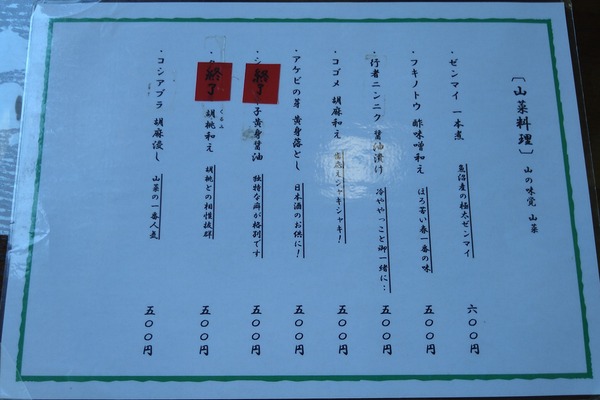 〔山菜料理〕 山の味覚 山菜
・ゼンマイ 一本煮 魚沼産の極太ゼンマイ 六〇〇円
・フキノトウ 酢味噌和え ほろ苦い春一番の味 五〇〇円
・行者ニンニク 醤油漬け 冷ややっこと御一緒に・・ 五〇〇円
・コゴメ 胡麻和え シャキシャキ! 五〇〇円
・アケビの芽 黄身落とし 日本酒のお供に! 五〇〇円
・シ 終了 子黄身醤油 独特な癖が格別です 五〇〇円
・ 終了 胡桃和え くるみ 胡桃との相性抜群 五〇〇円
・コシアブラ 胡麻浸し 山菜の一番人気 五〇〇円